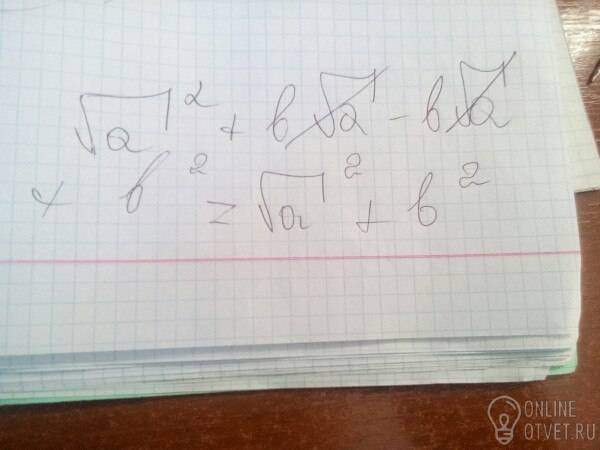 √a² + b√a - b√a
+ b² = √a² + b²
ONLINE
OTVET.RU